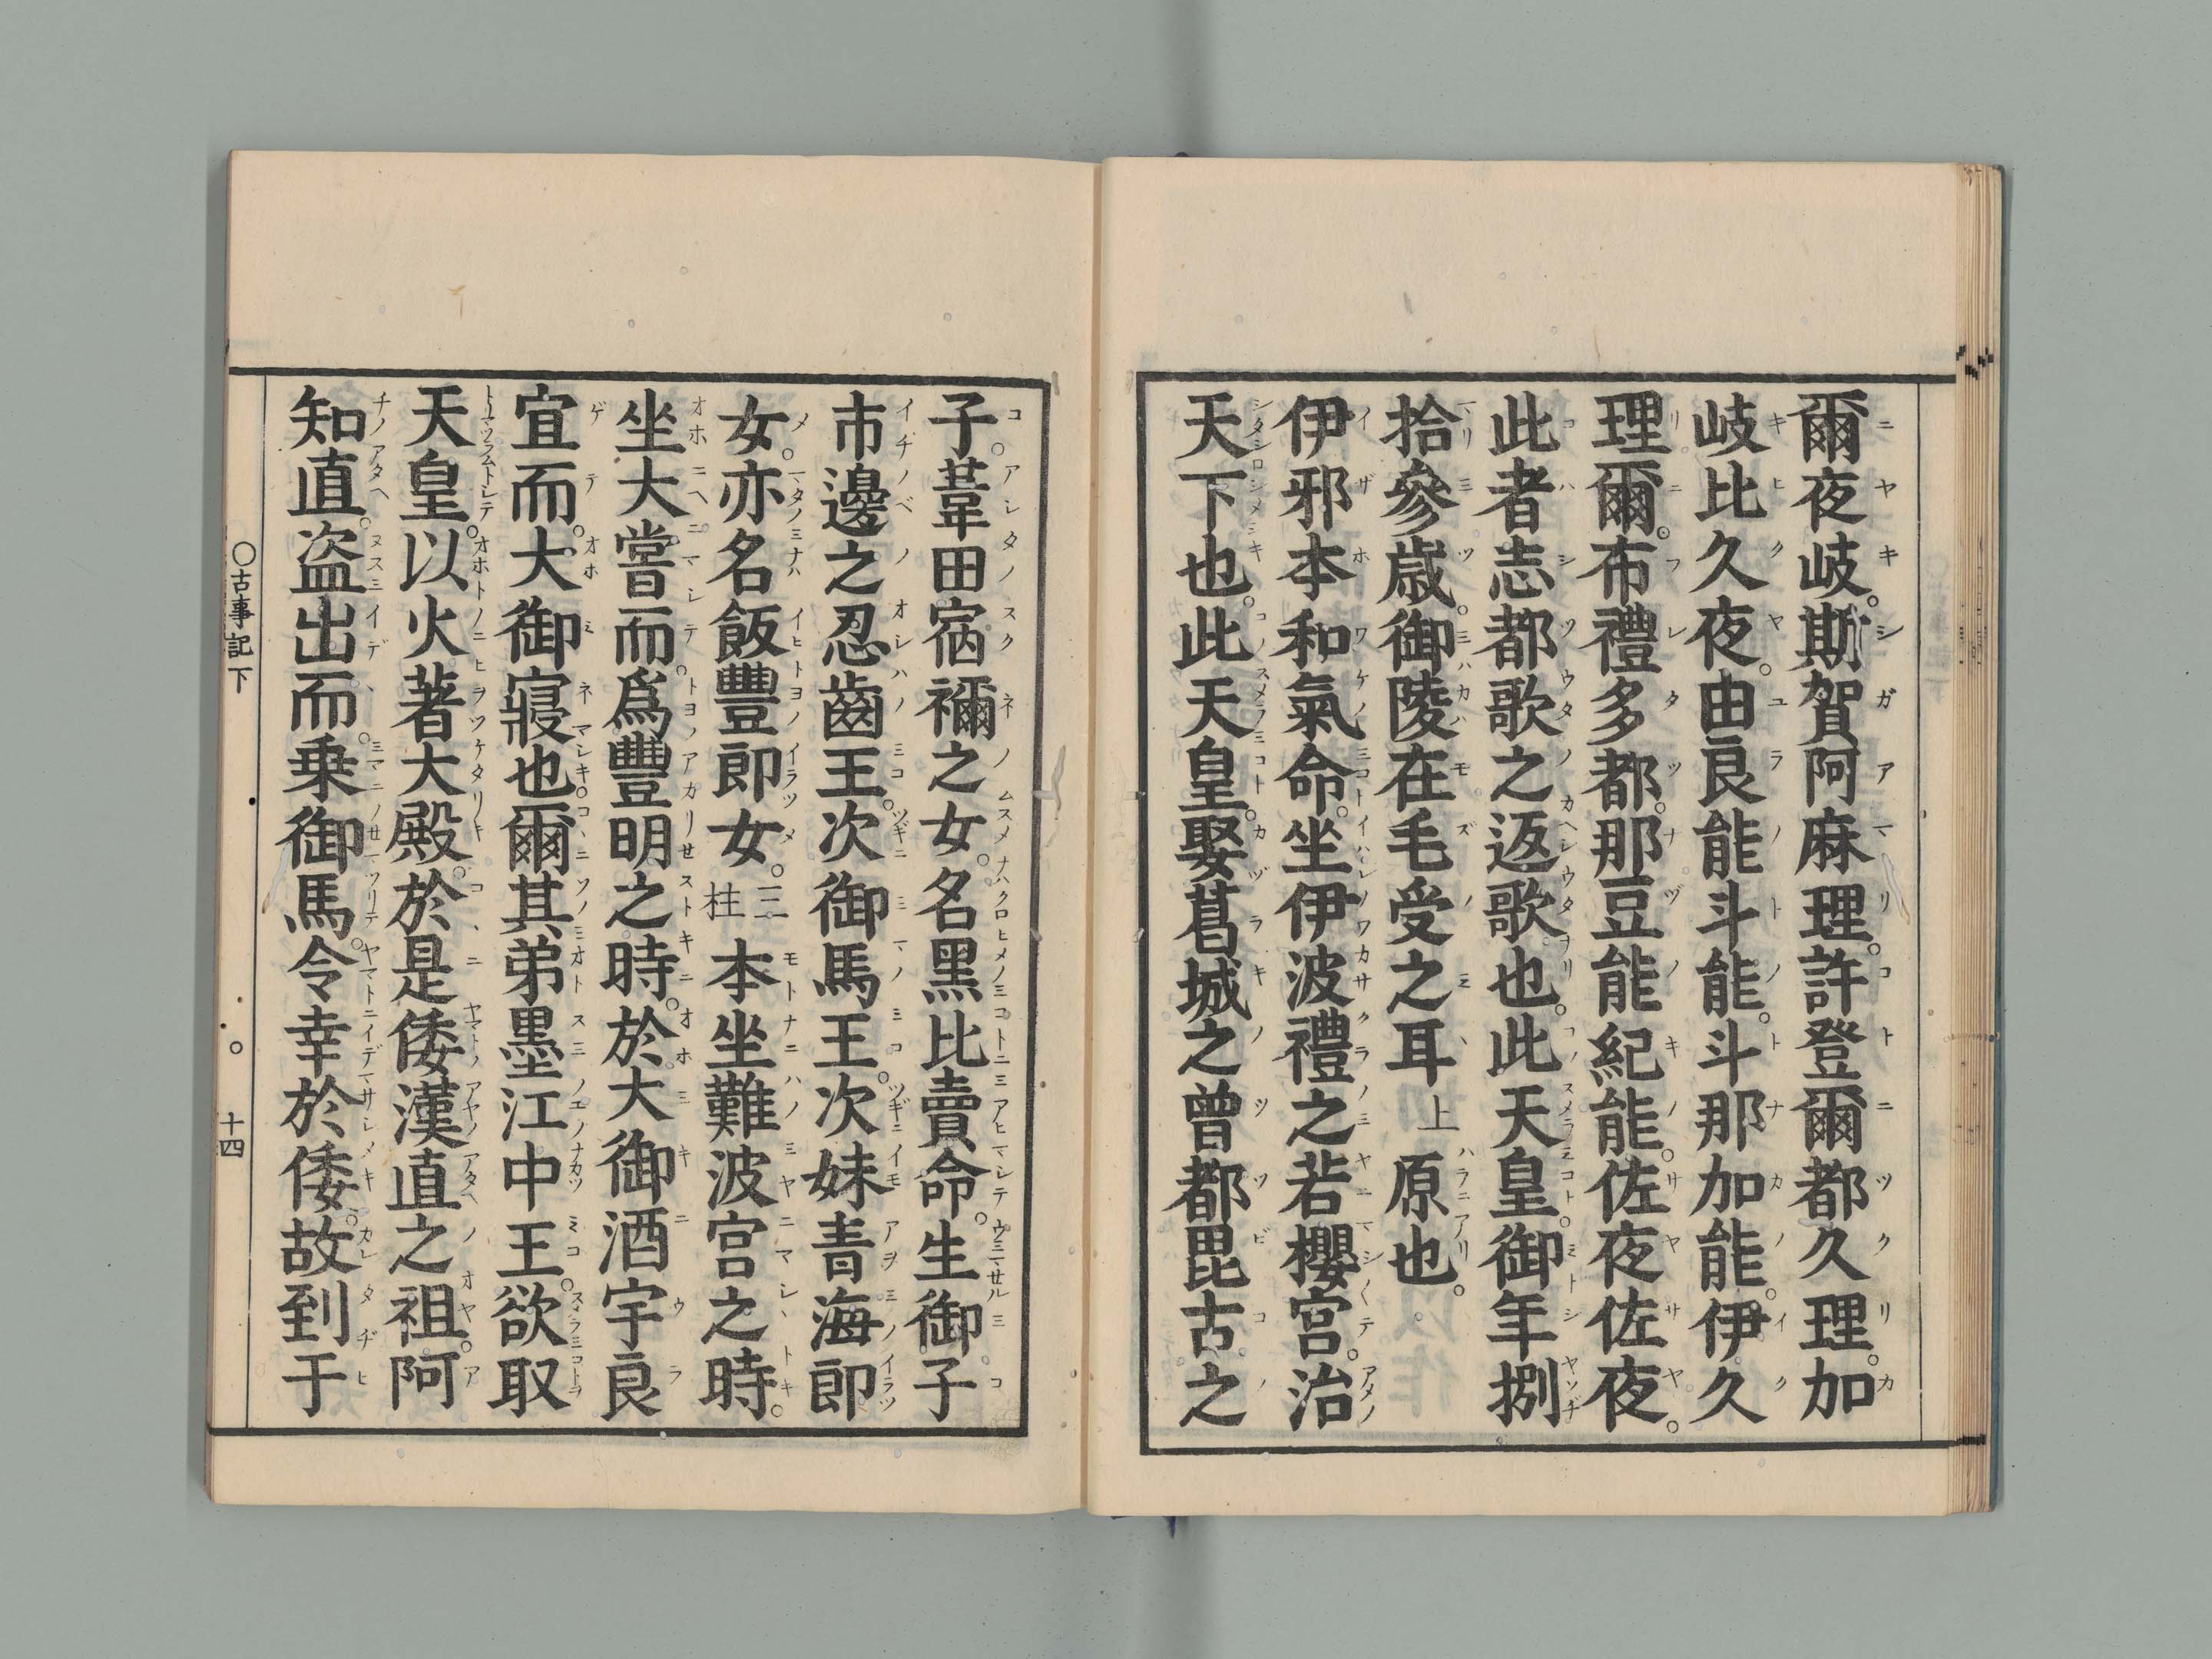 爾夜岐。斯賀阿麻理。許登爾都久理。加
岐比久夜。由良能斗能。斗那加能。伊久
理爾。布禮多都。那豆能紀能。佐夜佐夜。
此者志都歌之返歌也。此天皇御年捌
拾參歲。御陵在毛受之耳上原也。
伊邪本和氣命。坐伊波禮之若櫻宮。治
天下也。此天皇。娶葛城之曾都毘古之
子。葦田宿禰之女。名黑比賣命。生御子
市邊之忍齒王。次御馬王。次妹青海郎
女。亦名飯豐郎女。三柱 本坐難波宮之時。
坐大嘗而。爲豐明之時。於大御酒宇良
宜而。大御寢也。爾其弟墨江中王。欲取
天皇。以火著大殿。於是倭漢直之祖。阿
知直。盗出而。乗御馬。令幸於倭。故到于
〇古事記下 十四